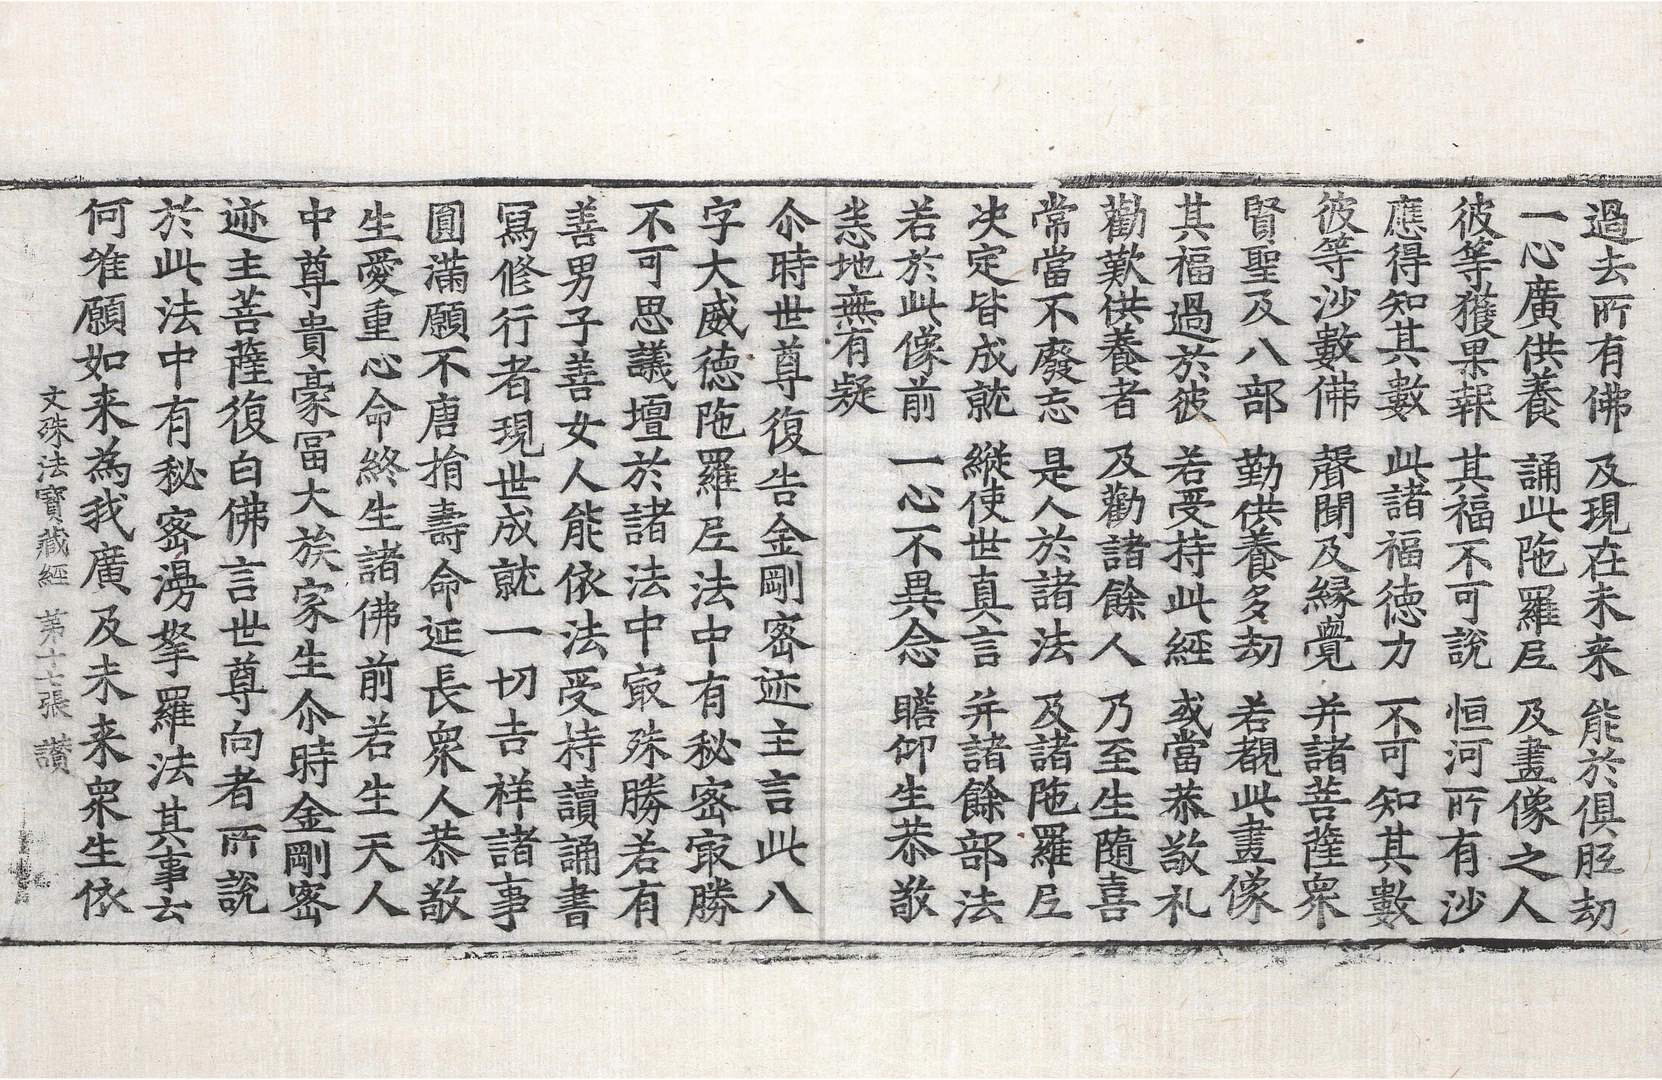 過去所有佛　及現在未来　能於俱胝劫
一心廣供養　誦此陁羅尼　及畫像之人
彼等獲果報　其福不可說　恒河所有沙
應得知其數　此諸福德力　不可知其數
彼等沙數佛　聲聞及緣覺　并諸菩薩衆
賢聖及八部　勤供養多劫　若覩此畫像
其福過於彼　若受持此經　或當恭敬礼
勸歎供養者　及勸諸餘人　乃至生隨喜
常當不廢忘　是人於諸法　及諸陁羅尼
决定皆成就　縱使世真言　并諸餘部法
若於此像前　一心不異念　瞻仰生恭敬
恙地無有疑
尒時世尊復告金剛密迹主言此八
字大威德陁羅尼法中有秘密㝡勝
不可思議壇於諸法中㝡殊勝若有
善男子善女人能依法受持讀誦書
冩修行者現世成就一切吉祥諸事
圓滿願不唐捐壽命延長衆人恭敬
生愛重心命終生諸佛前若生天人
中尊貴豪冨大族家生尒時金剛密
迹主菩薩復白佛言世尊向者所說
於此法中有秘密湯拏羅法其事云
何唯願如来為我廣及未来衆生依
文殊法寶藏經　第十七張　讃